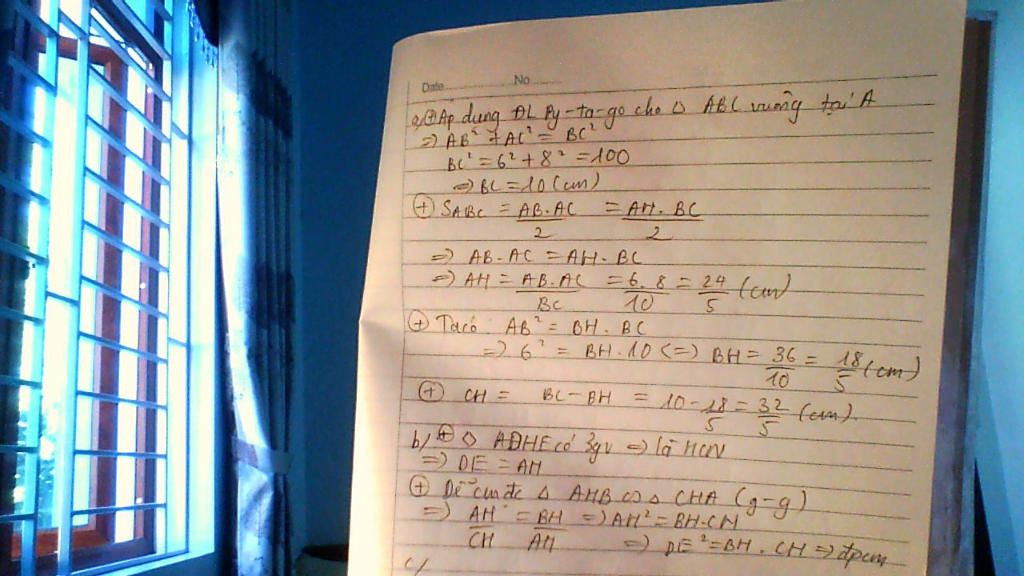 Date No
a, ⊕ Áp dụng ĐL Py-ta-go cho △ ABC vuông tại A
=> AB² + AC² = BC²
BC² = 6² + 8² = 100
=> BC = 10 (cm)
⊕ SABC = AB.AC/2 = AH.BC/2
=> AB.AC = AH.BC
=> AH = AB.AC/BC = 6.8/10 = 24/5 (cm)
⊕ Ta có: AB² = BH.BC
=> 6² = BH.10 <=> BH = 36/10 = 18/5 (cm)
⊕ CH = BC - BH = 10 - 18/5 = 32/5 (cm).
b, ⊕ ◇ ADHE có 3gv => là HCN
=> DE = AH
⊕ Dễ cm đc △ AHB ∽ △ CHA (g-g)
=> AH/CH = BH/AH => AH² = BH.CH
=> DE² = BH.CH => đpcm
c,